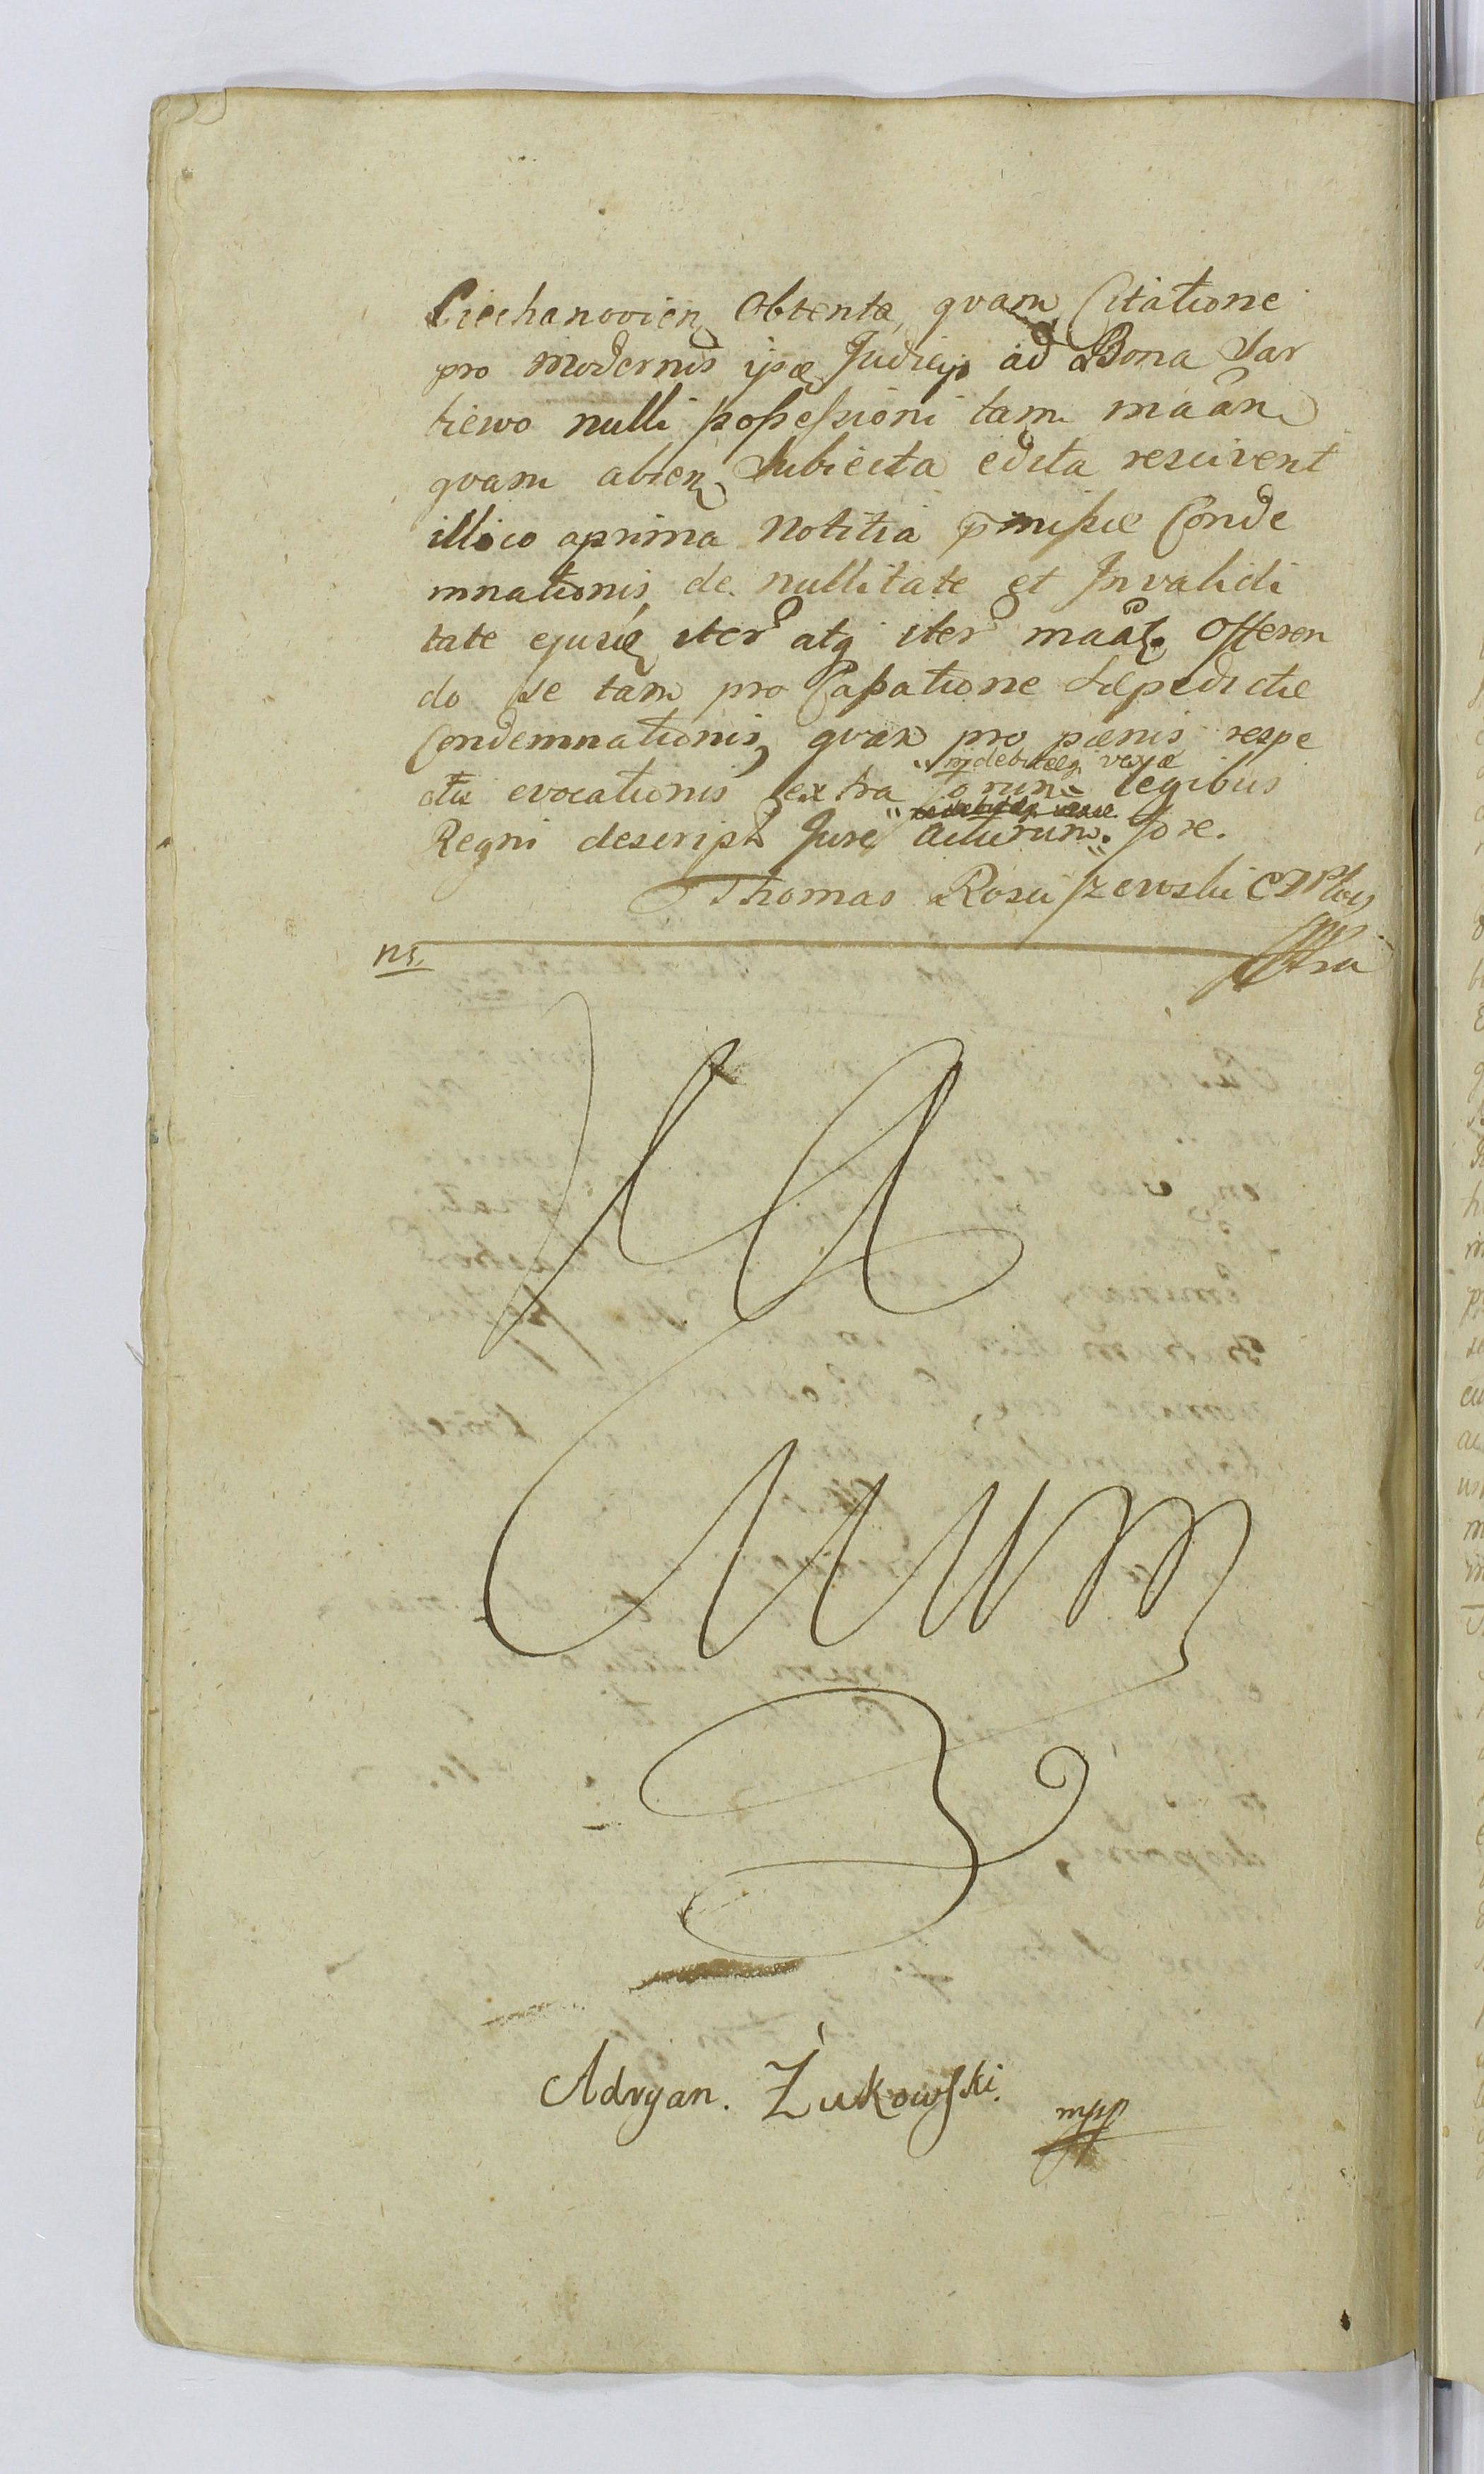 Ciechanovien obtenta, qvam Citatione
pro modernis ipse Judicys ad Bona Sar
biewo nulli possessioni tam maan
qvam alien Subiecta edita rescivent
illico aprima notitia p̄missæ Conde
mnationis de nullitate et Invalidi
tate ejusd iter atq iter maal Offeren
do se tam pro Cassatione sæpedictæ
Condemnationis, qvam pro pænis respe
ctu evocationis extra forum legibus
indebitæq vexæ
Regni descript Jure acturum fore.
Thomas Rosciszewski
ns.
Actum
Adryan. Żukowski. mpp